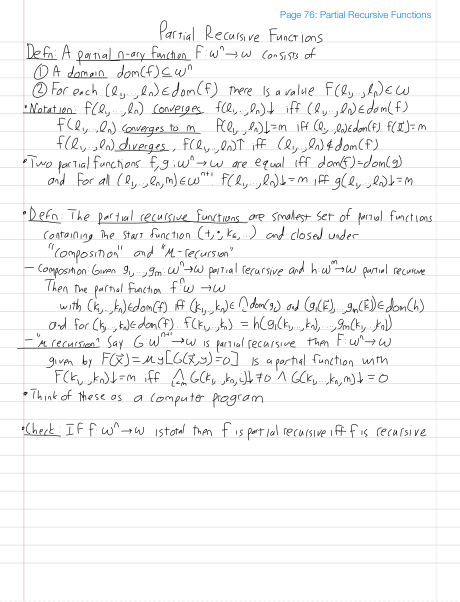 Page 76: Partial Recursive Functions
Partial Recursive Functions
Defn: A partial n-ary function F: ω^n → ω consists of
① A domain dom(f) ⊆ ω^n
② For each (l_1, ..., l_n) ∈ dom(f) there is a value F(l_1, ..., l_n) ∈ ω
• Notation: f(l_1, ..., l_n) converges f(l_1, ..., l_n)↓ iff (l_1, ..., l_n) ∈ dom(f)
f(l_1, ..., l_n) converges to m f(l_1, ..., l_n)↓=m iff (l_1, ..., l_n) ∈ dom(f) f(l⃗)=m
f(l_1, ..., l_n) diverges, f(l_1, ..., l_n)↑ iff (l_1, ..., l_n) ∉ dom(f)
• Two partial functions f, g: ω^n → ω are equal iff dom(f)=dom(g)
and for all (l_1, ..., l_n, m) ∈ ω^{n+1} f(l_1, ..., l_n)↓=m iff g(l_1, ..., l_n)↓=m
• Defn: The partial recursive functions are smallest set of partial functions
containing the start function (+, ·, K_<, ...) and closed under
"composition" and "μ-recursion"
– Composition: Given g_1, ..., g_m: ω^n → ω partial recursive and h: ω^m → ω partial recursive
Then the partial function f: ω^n → ω
with (k_1, ..., k_n) ∈ dom(f) iff (k_1, ..., k_n) ∈ ⋂ dom(g_i) and (g_1(k⃗), ..., g_m(k⃗)) ∈ dom(h)
and for (k_1, ..., k_n) ∈ dom(f). f(k_1, ..., k_n) = h(g_1(k_1, ..., k_n), ..., g_m(k_1, ..., k_n))
– "μ recursion" Say G: ω^{n+1} → ω is partial recursive then F: ω^n → ω
given by F(x⃗)=μy[G(x⃗,y)=0] is a partial function with
F(k_1, ..., k_n)↓=m iff ⋀_{i<m} G(k_1, ..., k_n, i)↓≠0 ∧ G(k_1, ..., k_n, m)↓=0
• Think of these as a computer program
• Check: If f: ω^n → ω is total then f is partial recursive iff f is recursive